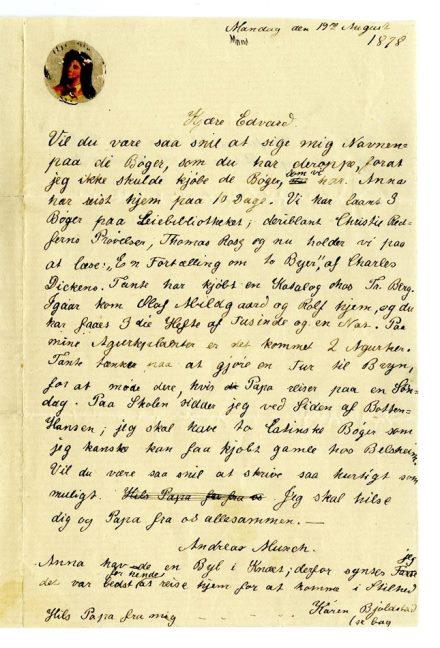 Mandag den 19de August
1878
Kjære Edvard.
Vil du være saa snil at sige mig Navnene
paa de Bøger, som du har deroppe, forat
jeg ikke skulde kjøbe de Bøger, som vi har. Anna
har reist hjem paa 10 Dage. Vi har laant 3
Bøger paa Leiebibliotheket; deriblant Christie Red-
ferns Prøvelser, Thomas Ross og nu holder vi paa
at læse: „En Fortælling om to Byer", af Charles
Dickens. Tante har kjøbt en Katalog hos Th. Berg.
Igaar kom Olaf Mildgaard og Rolf hjem, og du
har faaet 3die Hefte af Tusinde og en Nat. Paa
mine Agurkplanter er det kommet 2 Agurker.
Tante tænker paa at gjøre en Tur til Bryn,
for at møde dere, hvis Papa reiser paa en Søn-
dag. Paa Skolen sidder jeg ved Siden af Botten-
Hansen; jeg skal have to Latinske Bøger som
jeg kanske kan faa kjøbt gamle hos Belsheim.
Vil du være saa snil at skrive saa hurtigt som
muligt. Hils Papa fra os Jeg skal hilse
dig og Papa fra os allesammen. —
Andreas Munch.
Anna havde en Byl i Knæet; derfor synes jeg Tante
det var bedst for hende at reise hjem for at komme i Stilhed
Hils Papa fra mig Karen Bjølstad
(se bag